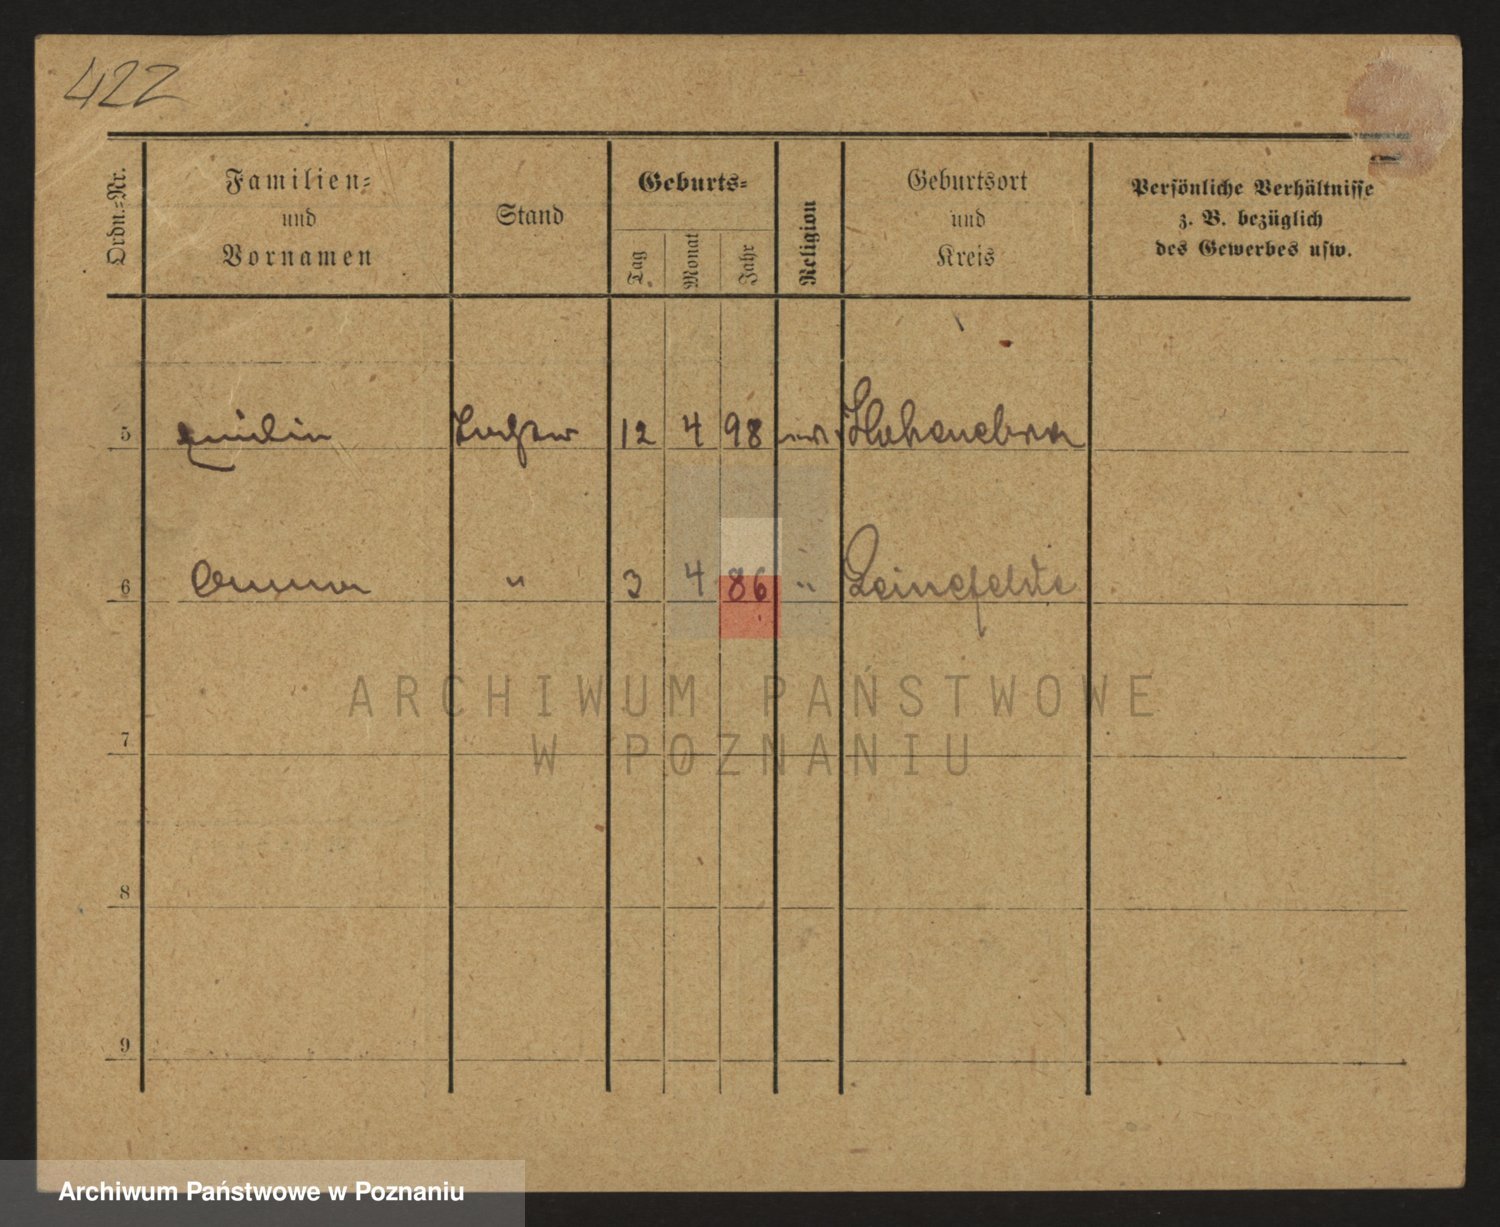 422
Ordn.-Nr.
Familien-
und
Vornamen
Stand
Geburts-
Tag
Monat
Jahr
Religion
Geburtsort
und
Kreis
Persönliche Verhältnisse
z. B. bezüglich
des Gewerbes usw.
5 Tochter 12 4 98 Hohenebra
6 Anna " 3 4 86 " Leinefelde
7
8
9
ARCHIWUM PAŃSTWOWE
W POZNANIU
Archiwum Państwowe w Poznaniu